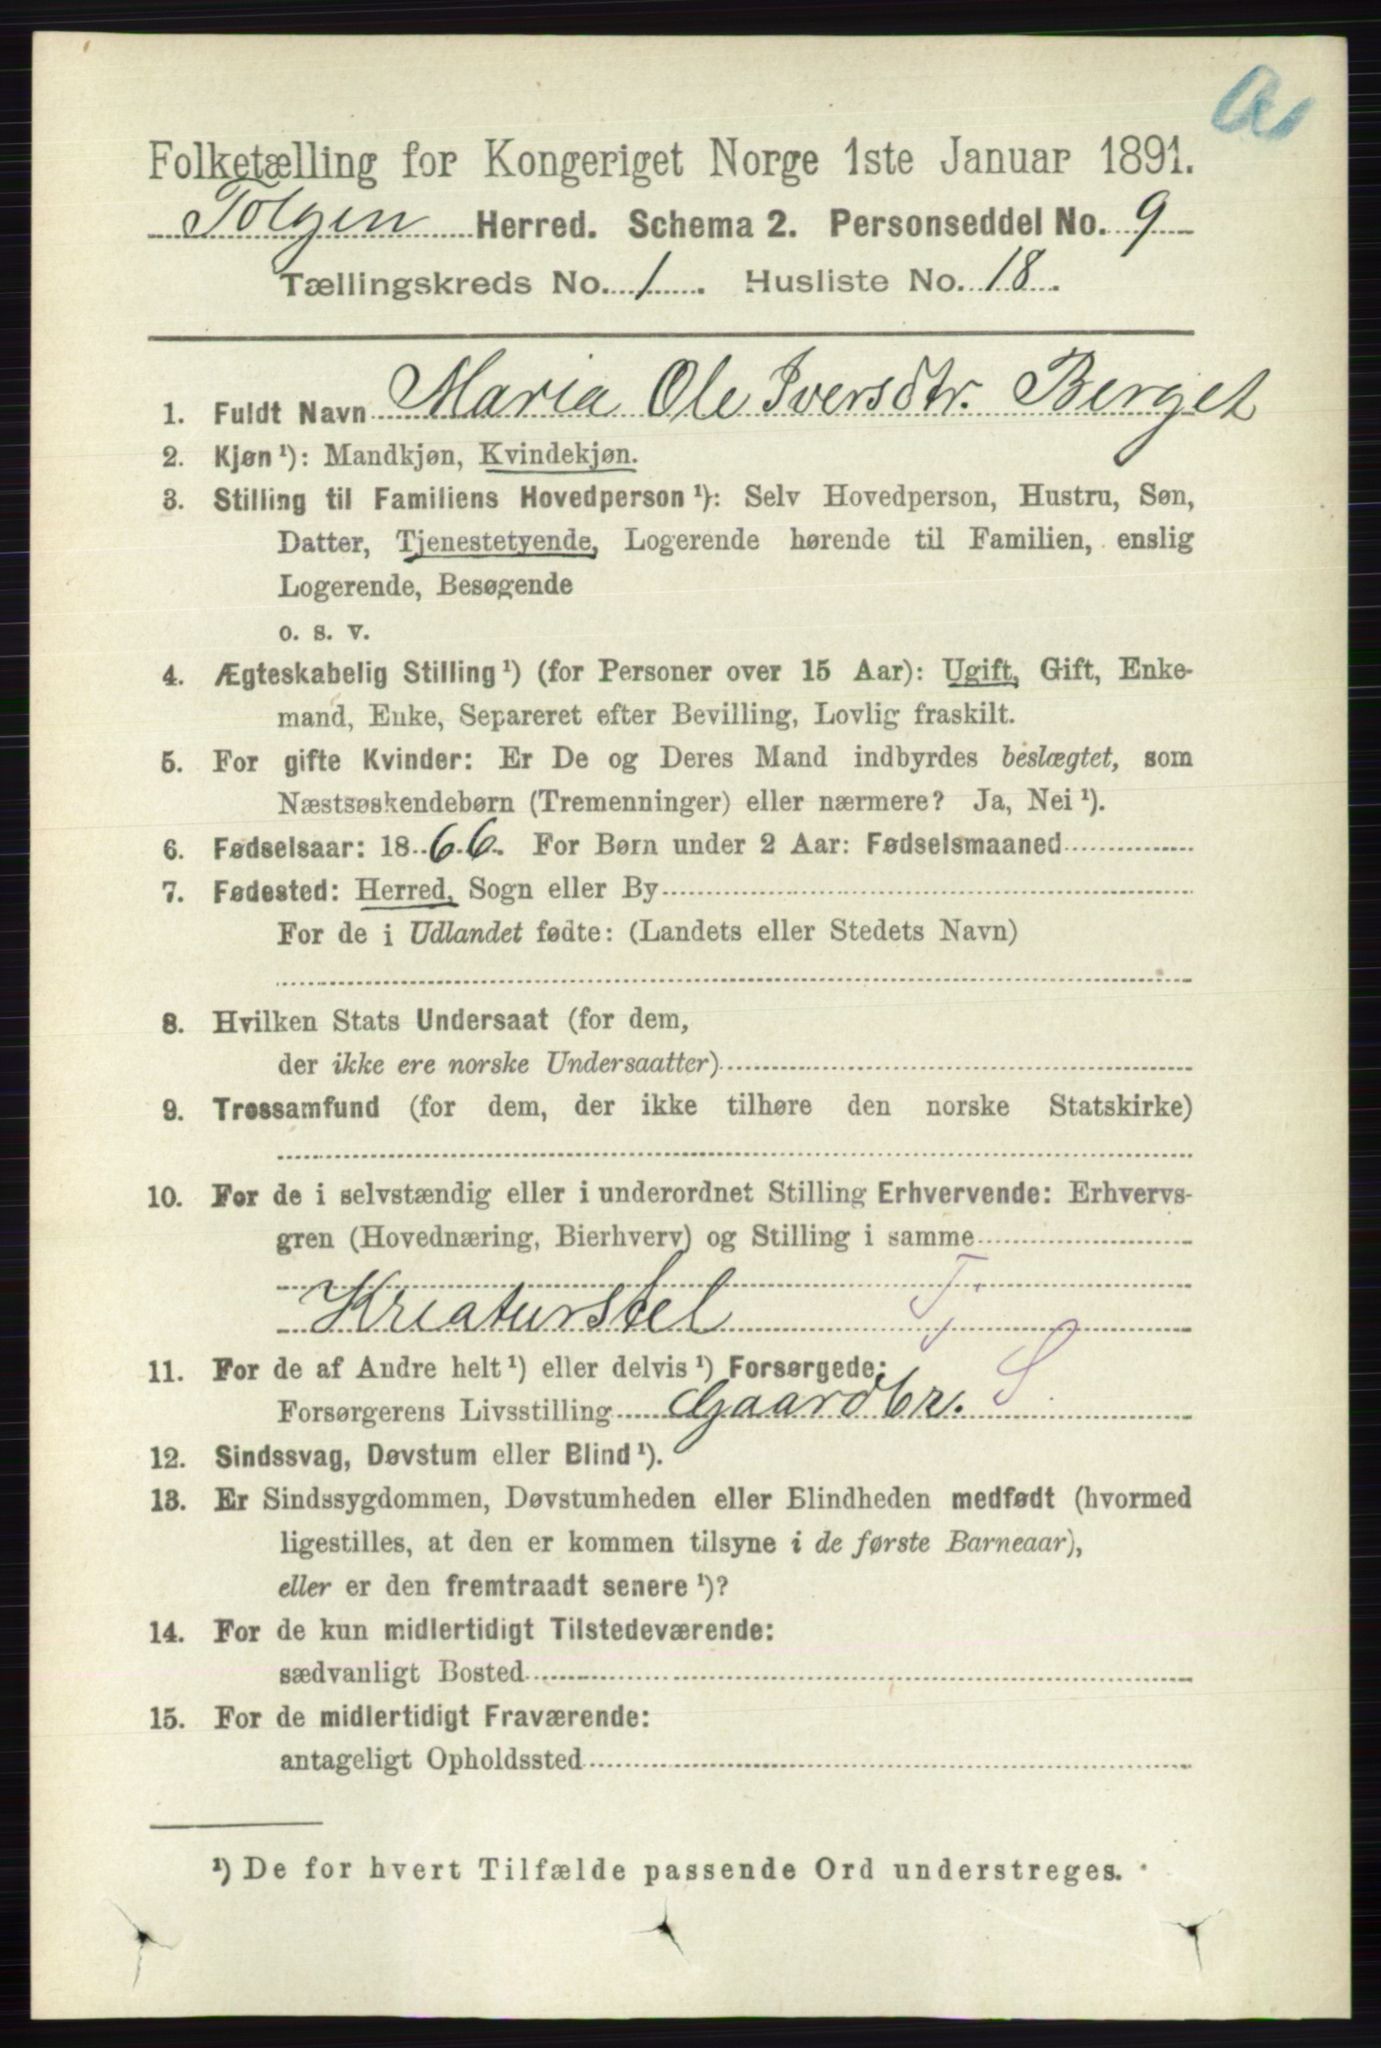 Folketælling for Kongeriget Norge 1ste Januar 1891.
Tolgen Herred. Schema 2. Personseddel No. 9
Tællingskreds No. 1. Husliste No. 18.
1. Fuldt Navn Maria Ole Iversdtr. Berget
2. Kjøn ¹): Mandkjøn, Kvindekjøn.
3. Stilling til Familiens Hovedperson ¹): Selv Hovedperson, Hustru, Søn,
Datter, Tjenestetyende, Logerende hørende til Familien, enslig
Logerende, Besøgende
o. s. v.
4. Ægteskabelig Stilling ¹) (for Personer over 15 Aar): Ugift, Gift, Enke-
mand, Enke, Separeret efter Bevilling, Lovlig fraskilt.
5. For gifte Kvinder: Er De og Deres Mand indbyrdes beslægtet, som
Næstsøskendebørn (Tremenninger) eller nærmere? Ja, Nei ¹).
6. Fødselsaar: 1866. For Børn under 2 Aar: Fødselsmaaned
7. Fødested: Herred, Sogn eller By
For de i Udlandet fødte: (Landets eller Stedets Navn)
8. Hvilken Stats Undersaat (for dem,
der ikke ere norske Undersaatter)
9. Trossamfund (for dem, der ikke tilhøre den norske Statskirke)
10. For de i selvstændig eller i underordnet Stilling Erhvervende: Erhvervs-
gren (Hovednæring, Bierhverv) og Stilling i samme
Kreaturstel T.
11. For de af Andre helt ¹) eller delvis ¹) Forsørgede:
Forsørgerens Livsstilling Gaardbr. S.
12. Sindssvag, Døvstum eller Blind ¹).
13. Er Sindssygdommen, Døvstumheden eller Blindheden medfødt (hvormed
ligestilles, at den er kommen tilsyne i de første Barneaar),
eller er den fremtraadt senere ¹)?
14. For de kun midlertidigt Tilstedeværende:
sædvanligt Bosted
15. For de midlertidigt Fraværende:
antageligt Opholdssted
¹) De for hvert Tilfælde passende Ord understreges.